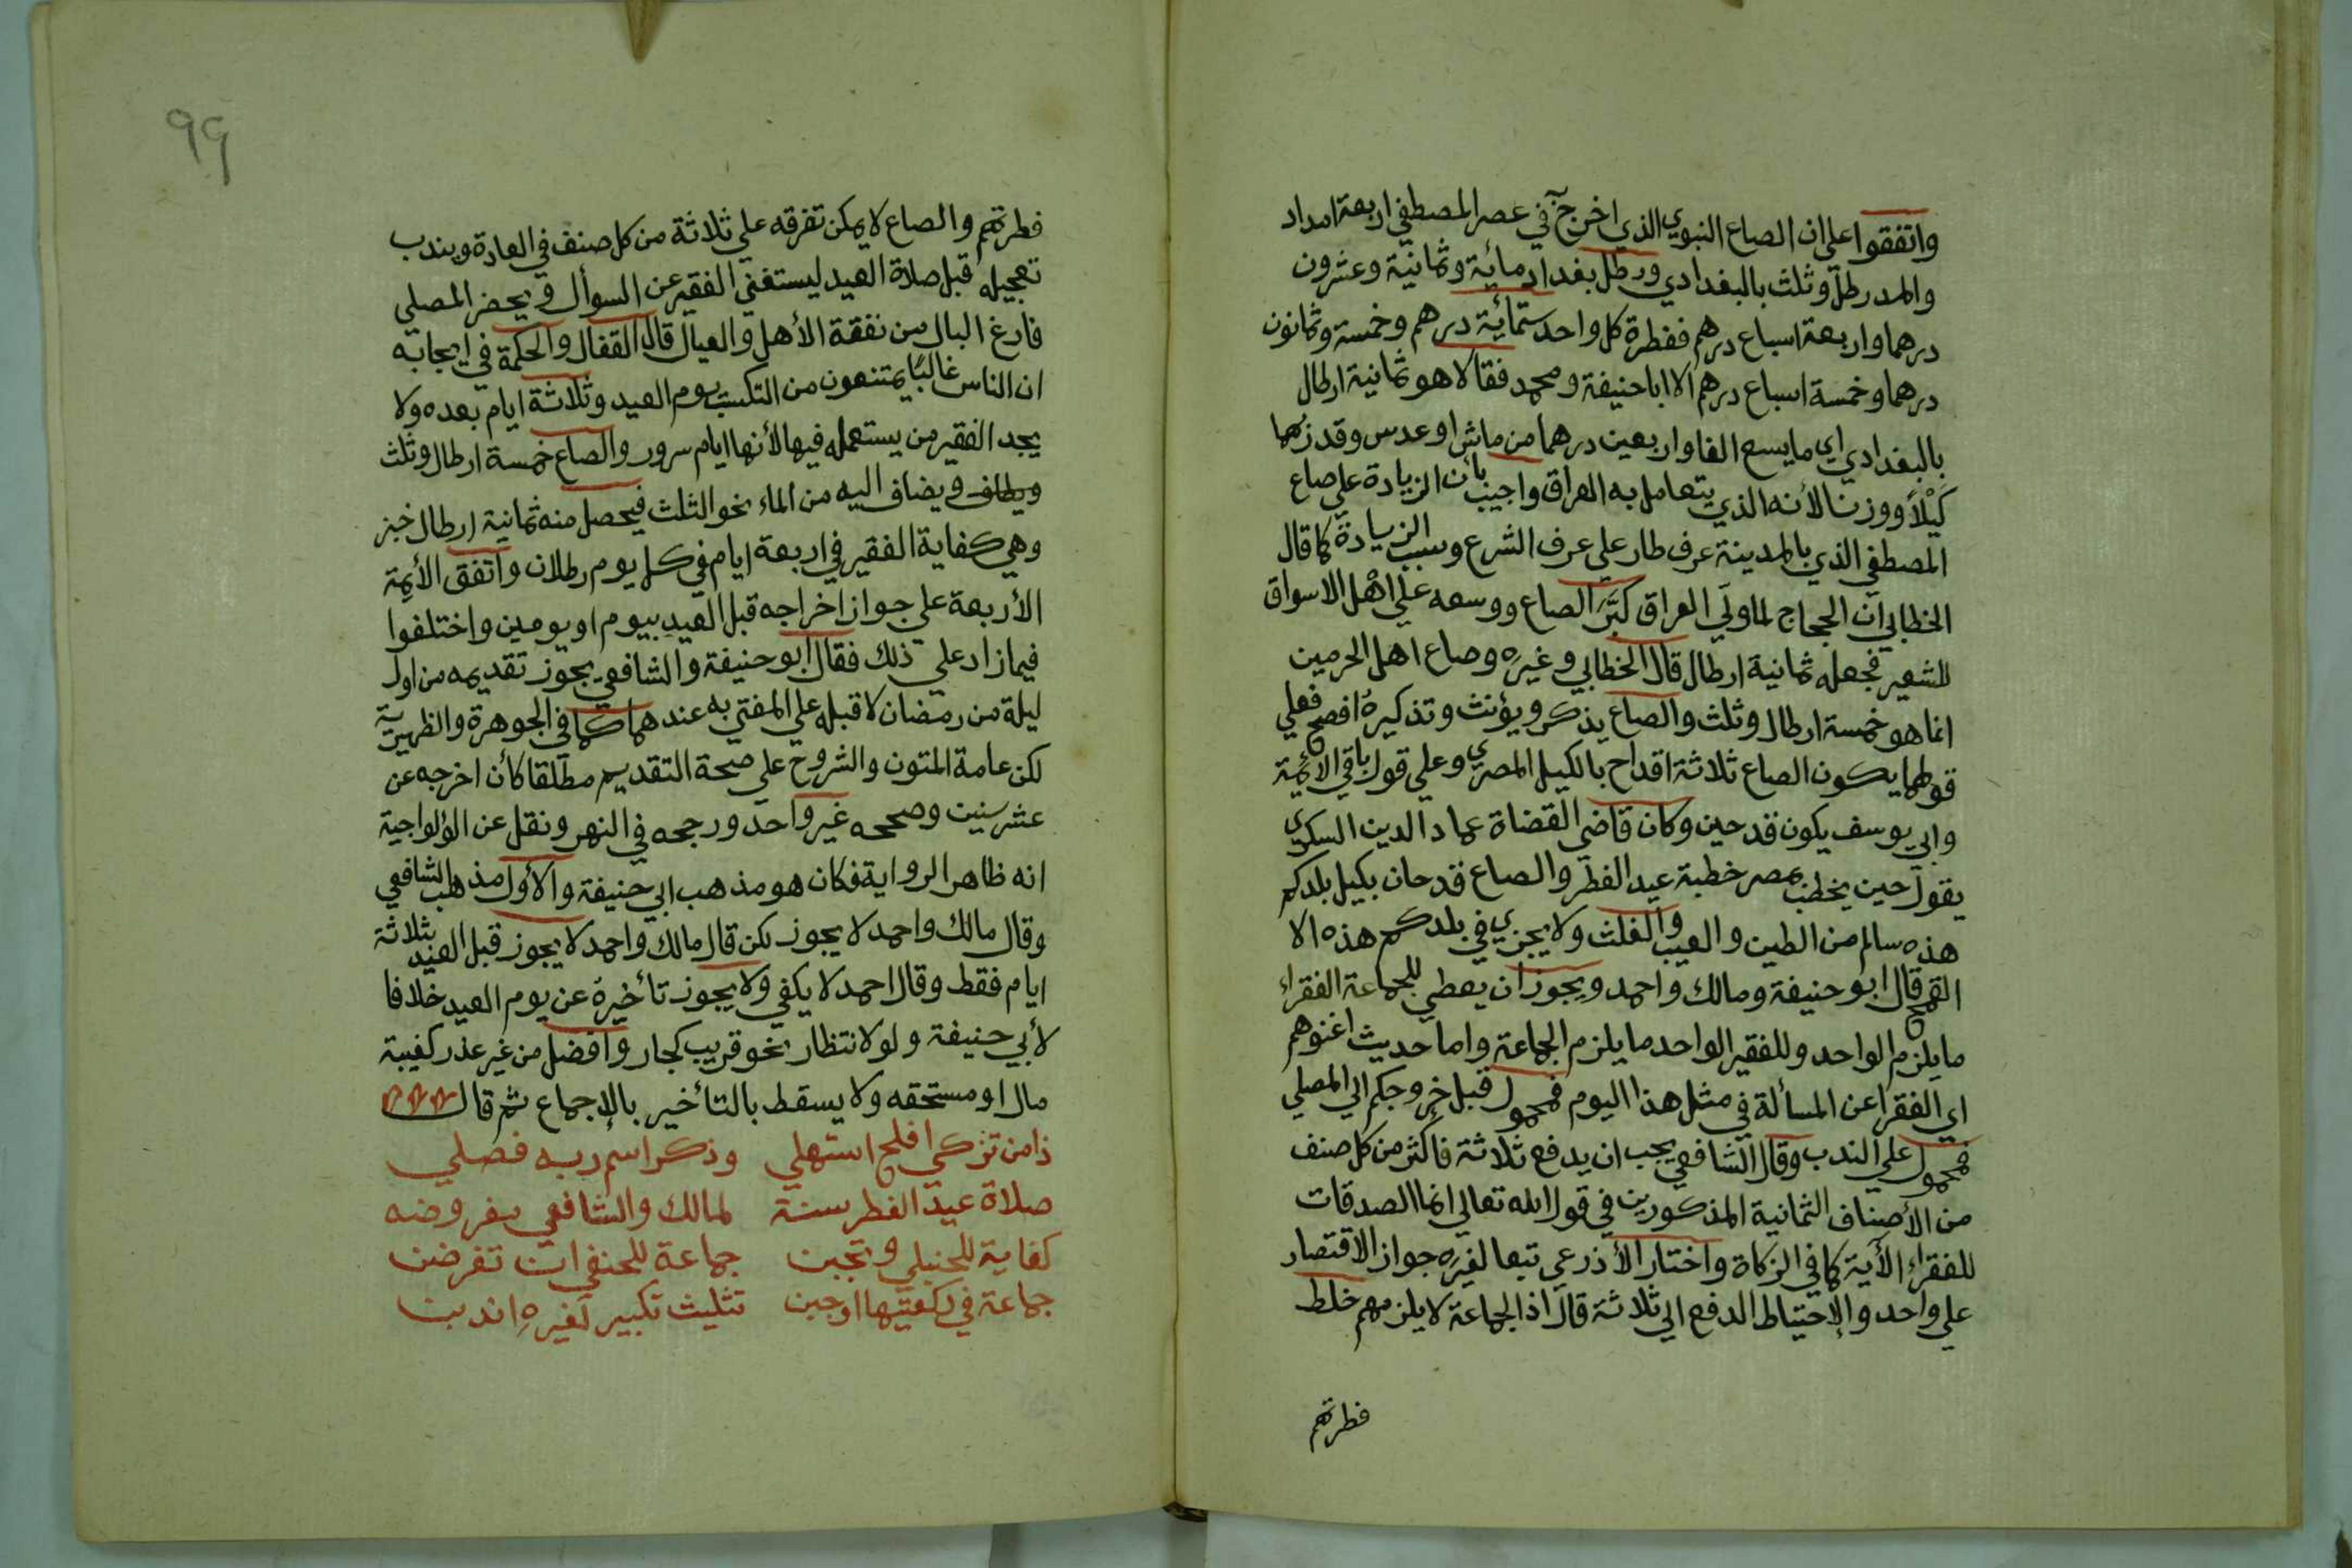 واتفقوا على ان الصاع النبوي الذي اخرج في عصر المصطفي اربعة امداد
والمد رطل وثلث بالبغدادي ورطل بغداد مائية وثمانية وعشرون
درهما واربعة اسباع درهم ففطرة كل واحد ستمائية درهم وخمسة وثمانون
درهما وخمسة اسباع درهم الا ابا حنيفة ومحمد فقالا هو ثمانية ارطال
بالبغدادي اي ما يسع الفا واربعين درهما من ماش او عدس وقدرهما
كَيْلاً ووزنا لأنه الذي يتعامل به العراق واجيب بان الزيادة على صاع
المصطفي الذي بالمدينة عرف طار علي عرف الشرع وسبب الزيادة كما قال
الخطابي ان الحجاج لما ولَي العراق كَبَّرَ الصاع ووسعه علي اهْل الاسواق
للشعير فجعله ثمانية ارطال قال الخطابي وغيره وصاع اهل الحرمين
انما هو خمسة ارطال وثلث والصاع يذكر ويؤنث وتذكيرهُ افصح فعلي
قولهما يكون الصاع ثلاثة اقداح بالكيل المصري وعلي قول باقي الائمية
وابي يوسف يكون قدحين وكان قاضي القضاة عماد الدين السكري
يقول حين يخطب بمصر خطبة عيد الفطر والصاع قدحان بكيل بلدكم
هذه سالم من الطين والعيب والغلث ولا يجزي في بلدكم هذه الا
القمح قال ابو حنيفة ومالك واحمد ويجوز ان يعطي للجماعة الفقراء
ما يلزم الواحد وللفقير الواحد ما يلزم الجماعة واما حديث اغنوهم
اي الفقرا عن المسألة في مثل هذا اليوم فمحمول قبل خروجكم الي المصلي
فمحمول علي الندب وقال الشافعي يجب ان يدفع ثلاثة فاكثر من كل صنف
من الأصناف الثمانية المذكورين في قول الله تعالي انما الصدقات
للفقراء الأية كما في الزكاة واختار الأذرعي تبعا لغيره جواز الاقتصار
علي واحد والإحتياط الدفع الي ثلاثة قال اذ الجماعة لا يلزمهم خلط
فطرتهم
٩٩
فطرتهم والصاع لا يمكن تفرقه علي ثلاثة من كل صنف في العادة ويندب
تعجيله قبل صلاة العيد ليستغني الفقير عن السوأل ويحضر المصلي
فارغ البال من نفقة الأهل والعيال قال القفال والحكمة في ايجابه
ان الناس غالبًا يمتنعون من التكسب يوم العيد وثلاثة ايام بعده ولا
يجد الفقير من يستعمله فيها لأنها ايام سرور والصاع خمسة ارطال وثلث
ويضاف اليه من الماء نحو الثلث فيحصل منه ثمانية ارطال خبز
وهي كفاية الفقير في اربعة ايام في كل يوم رطلان واتفق الأيمة
الأربعة علي جواز اخراجه قبل العيد بيوم او يومين واختلفوا
فيما زاد علي ذلك فقال ابو حنيفة والشافعي يجوز تقديمه من اول
ليلة من رمضان لا قبله علي المفتي به عندهما كما في الجوهرة والظهيرية
لكن عامة المتون والشروح علي صحة التقديم مطلقا كأن اخرجه عن
عشر سنين وصححه غير واحد ورجحه في النهر ونقل عن الولواجية
انه ظاهر الرواية فكان هو مذهب ابي حنيفة والأول مذهب الشافعي
وقال مالك واحمد لا يجوز لكن قال مالك واحمد لا يجوز قبل العيد بثلاثة
ايام فقط وقال احمد لا يكفي ولا يجوز تأخيرهُ عن يوم العيد خلافا
لأبي حنيفة ولو لانتظار نحو قريب كجار وافضل من غير عذر كغيبة
مال او مستحقه ولا يسقط بالتأخير بالإجماع ثم قال
ذا من تزكي افلح استهلي وذكر اسم ربه فصلي
صلاة عيد الفطر سنة لمالك والشافعي مفروضه
كفاية للحنبلي وتجبن جماعة للحنفي ان تفرضن
جماعة في ركعتيها اوجبن تثليث تكبير لغيرهِ اندبن